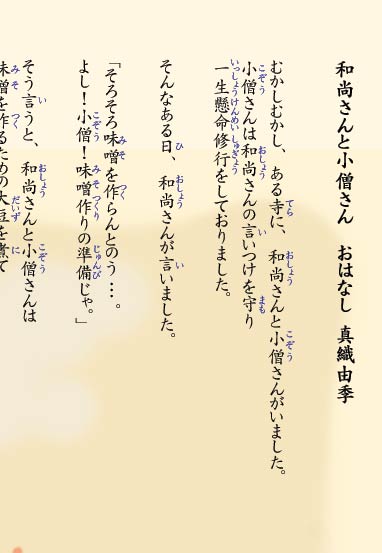 和尚さんと小僧さん　おはなし　真織由季
むかしむかし、ある寺に、和尚さんと小僧さんがいました。
小僧さんは和尚さんの言いつけを守り
一生懸命修行をしておりました。
そんなある日、和尚さんが言いました。
「そろそろ味噌を作らんとのう…。
よし！小僧！味噌作りの準備じゃ。」
そう言うと、和尚さんと小僧さんは
味噌を作るための大豆を煮て